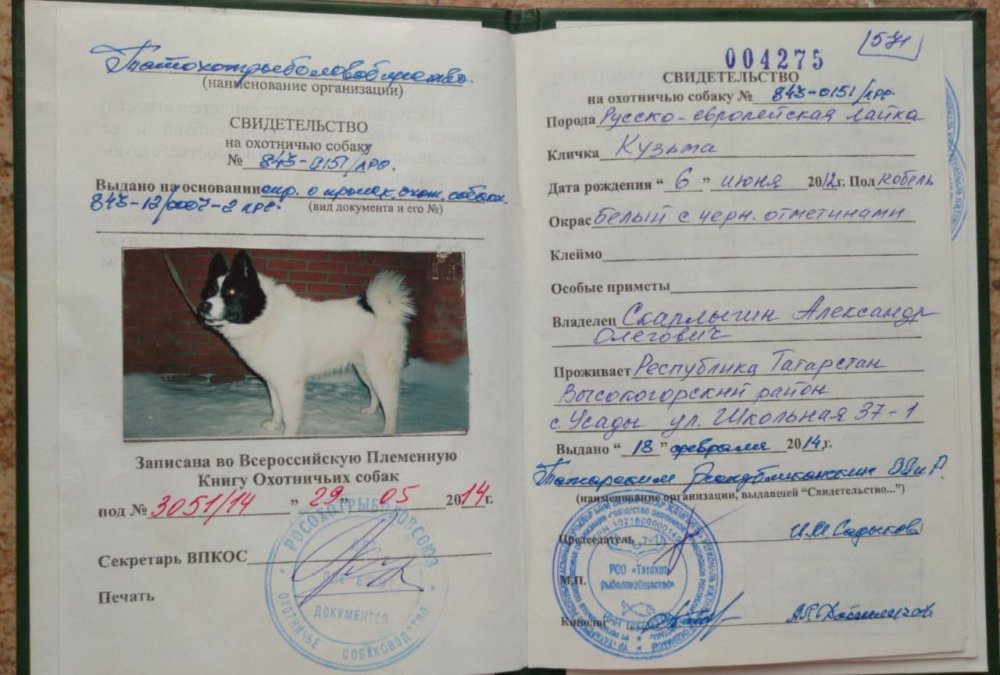 Татохотрыболовобщество.
(наименование организации)
СВИДЕТЕЛЬСТВО
на охотничью собаку
№ 843-0151/лрс.
Выдано на основании спр. о происх. охот. собаки.
843-12/0007-2 лрс.
(вид документа и его №)
Записана во Всероссийскую Племенную
Книгу Охотничьих собак
под № 3051/14 " 29 " 05 2014г.
Секретарь ВПКОС
Печать
РОСОХОТРЫБОЛОВСОЮЗ
ДОКУМЕНТОВ
ОХОТНИЧЬЕ СОБАКОВОДСТВО
571
004275
СВИДЕТЕЛЬСТВО
на охотничью собаку № 843-0151/лрс
Порода Русско-европейская лайка
Кличка Кузьма
Дата рождения " 6 " июня 2012г. Пол кобель
Окрас Белый с черн. отметинами
Клеймо
Особые приметы
Владелец Скарлыгин Александр
Олегович
Проживает Республика Татарстан
Высокогорский район
с. Усады ул. Школьная 37-1
Выдано " 18 " февраля 2014г.
Татарским Республиканским
(наименование организации, выдавшей "Свидетельство...")
Председатель И.М. Садыков
М.П.
РОО "Татохот-
рыболовобщество"
Кинолог